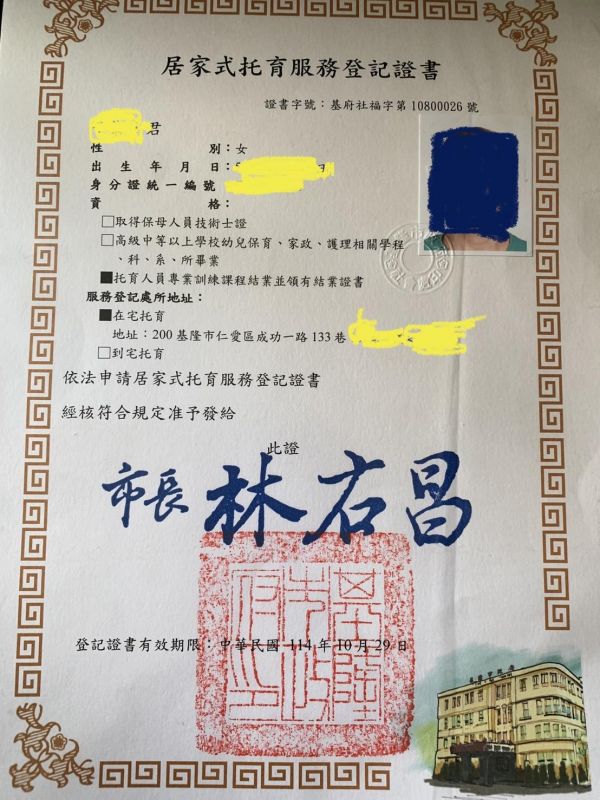 居家式托育服務登記證書
證書字號：基府社福字第10800026號
君
性別：女
出生年月日：
身分證統一編號
資格：
□取得保母人員技術士證
□高級中等以上學校幼兒保育、家政、護理相關學程
、科、系、所畢業
■托育人員專業訓練課程結業並領有結業證書
服務登記處所地址：
■在宅托育
地址：200基隆市仁愛區成功一路133巷
□到宅托育
依法申請居家式托育服務登記證書
經核符合規定准予發給
此證
市長 林右昌
基隆市政府印
登記證書有效期限：中華民國 114年10月29日